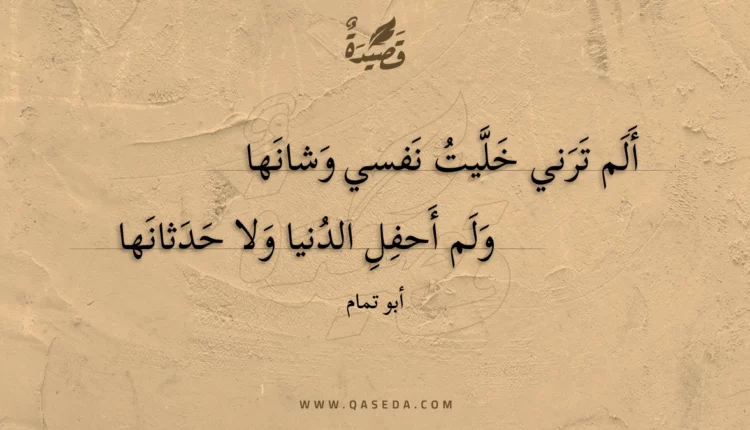 قَصِيدَةٌ
أَلَم تَرَني خَلَّيتُ نَفسي وَشانَها
وَلَم أَحفِلِ الدُنيا وَلا حَدَثانَها
أبو تمام
WWW.QASEDA.COM